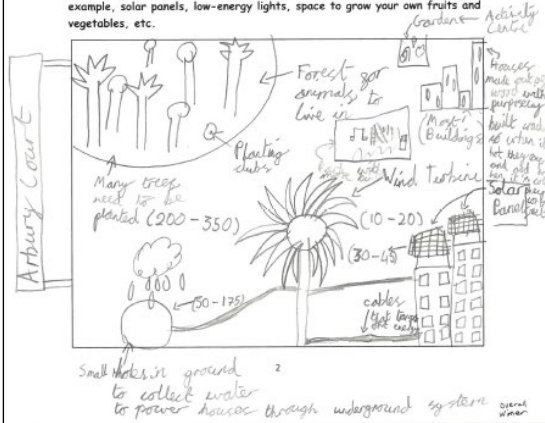 example, solar panels, low-energy lights, space to grow your own fruits and
vegetables, etc.
Gardens
Activity
Centre
Arbury Court
Forest for
animals to
live in
Planting
clubs
Many trees
need to be
planted (200-350)
(Most
Buildings)
Houses
made out of
wood
purposely
built
so when it
hot they
and
Wind Turbine
(10-20)
Solar
Panel
(30-45)
(50-175)
cables
that
energy
Small holes in ground
to collect water
to power houses through underground system
2
Overall
Winner